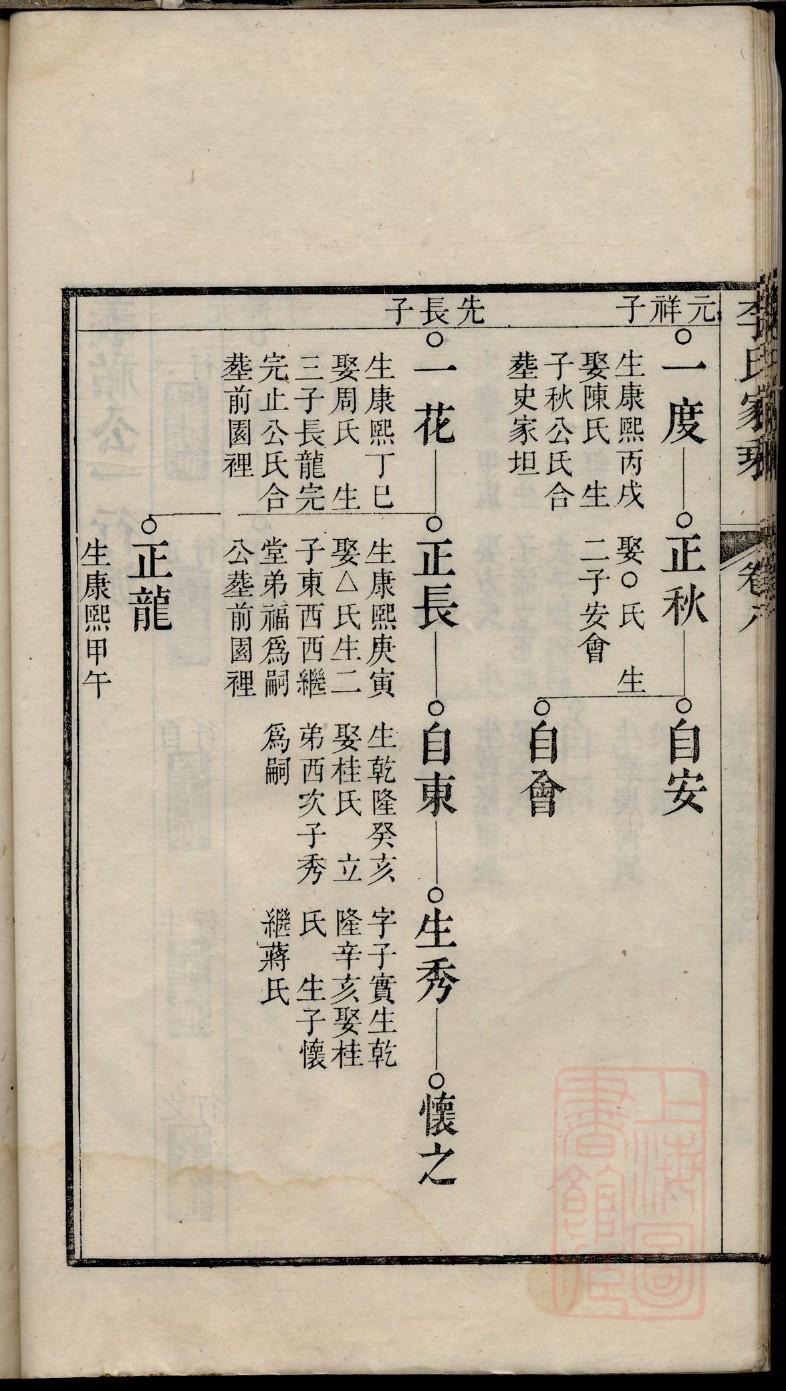 李氏家乘
卷六
元祥子
一度
生康熙丙戌
娶陳氏 生
子秋公氏合
塟史家坦
正秋
娶○氏 生
二子安會
自安
自會
先長子
一花
生康熙丁巳
娶周氏 生
三子長龍完
完止公氏合
塟前園裡
正長
生康熙庚寅
娶△氏生二
子東西西繼
堂弟福爲嗣
公塟前園裡
自東
生乾隆癸亥
娶桂氏 立
弟西次子秀
爲嗣
生秀
字子實生乾
隆辛亥娶桂
氏 生子懷
繼蔣氏
懷之
正龍
生康熙甲午
上海圖
書館藏